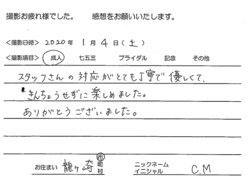 撮影お疲れ様でした。 感想をお願いいたします。
<撮影日時> 2020年 1月 4日(土)
<撮影項目> 成人 七五三 ブライダル 記念 その他
スタッフさんの対応がとても丁寧で優しくて、
きんちょうせずに楽しめました。
ありがとうございました。
お住まい 龍ヶ崎 市
ニックネーム
イニシャル C.M